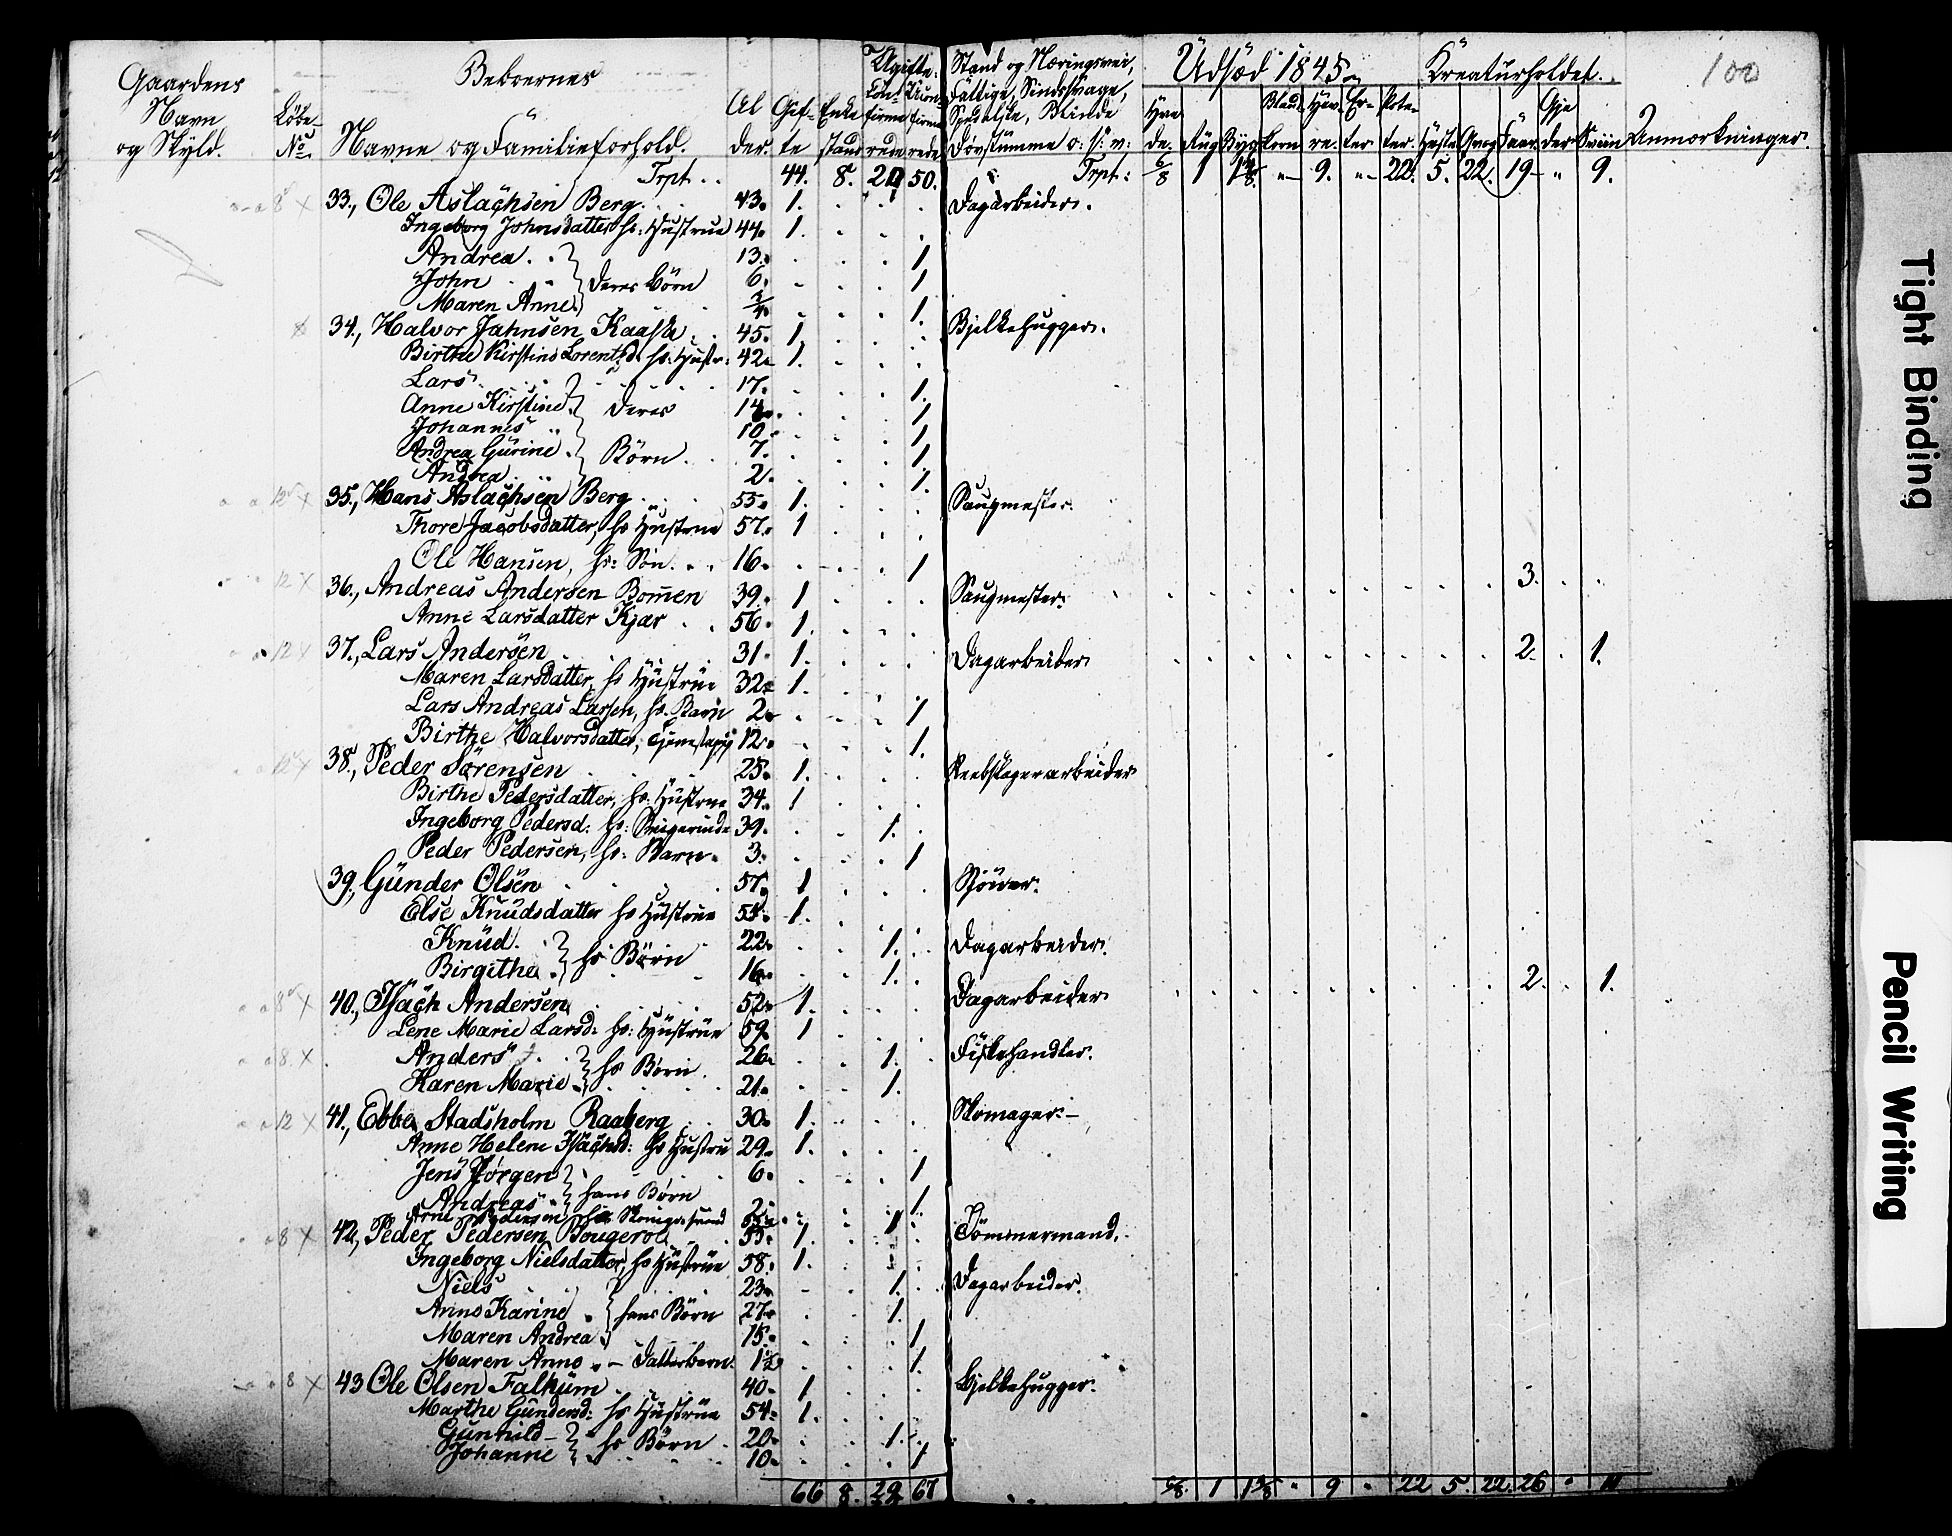 Gaardens Navn og Skyld.
Løbe No
Beboernes
Navne og Familieforhold.
Alder. Gifte Enkestand Ugifte: Confirmerede Uconfirmerede
Stand og Næringsvei, Fattige, Sindssvage, Spedalske, Blinde Dövstümme o: s: v:
Udsæd 1845
Kreaturholdet.
100
Hvede. Rüg Byg Bladkorn Havre. Erter. Poteter. Heste Qvæg Faar Gjeder Sviin Anmærkninger.
Trpt. . 44. 8. 29 50. Trpt: 6/8 1 9. 22. 5. 22. 19 „ 9.
33., Ole Aslachsen Berg 43. 1. Dagarbeider.
Ingeborg Johnsdatter hs: Hustrue 44. 1.
Andrea 13. 1
John deres börn 6. 1
Maren Anne 1.
34., Halvor Jahnsen Kaasa 45. 1. Bjelkehugger.
Birthe Kirstine Lorentzd. hs: Hustr: 42. 1.
Lars 17. 1.
Anne Kirstine Deres 14. 1
Johannes 10. 1
Andrea Gürine Börn. 7. 1
Andrea 2. 1.
35., Hans Aslachsen Berg 55. 1. Saugmester.
Thore Jacobsdatter, hs Hustrue 57. 1
Ole Hansen, hs: Sön. 16. 1
36., Andreas Andersen Bomen 39. 1 Saugmester. 3.
Anne Larsdatter Kjær 56. 1.
37., Lars Andersen 31. 1. Dagarbeider 2. 1.
Maren Larsdatter, hs Hüstrüe 32. 1.
Lars Andreas Larsen, hs. Barn 2. 1
Birthe Halvorsdatter, Tjenestepig 12. 1.
38., Peder Sørensen 28. 1. Reebslagerarbeider
Birthe Pedersdatter, hs: Hüstrue 34. 1
Ingeborg Pedersd: hs: Svigerinde 39. 1.
Peder Pedersen, hs: Barn. 3. 1
39., Günder Olsen 57. 1
Else Knüdsdatter hs Hüstrüe 54. 1.
Knüd. hs Börn 22. 1. Dagarbeider.
Birgithe 16. 1.
40., Isach Andersen 52. 1. Dagarbeider 2. 1.
Lene Marie Larsd: hs: Hüstrüe 59. 1
Anders hs Börn 26. 1. Fiskehandler.
Karen Marie 21. 1.
41., Ebbe Stadsholm Raaberg 30. 1. Skomager.
Anne Helene Isachsd: hs Hustru 29. 1.
Jens Jörgen hans Börn 6. 1
Andreas 2. 1.
42., Peder Pedersen Bougerod 55. 1. Tömmermand.
Ingeborg Nielsdatter, hs Hüstrüe 58. 1.
Niels 23. 1. Dagarbeider.
Anne Karine hans Börn 27. 1.
Maren Andrea 15. 1
Maren Anne — Datterbarn. 1½ 1.
43 Ole Olsen Falküm 40. 1 Bjelkehugger.
Marthe Gündersd: hs Hüstrüe 54. 1.
Gunhild hs Börn 20. 1.
Johanne 10. 1
66 8. 29 67 6/8. 1 9 22 5. 22. 26 11
Tight Binding
Pencil Writing